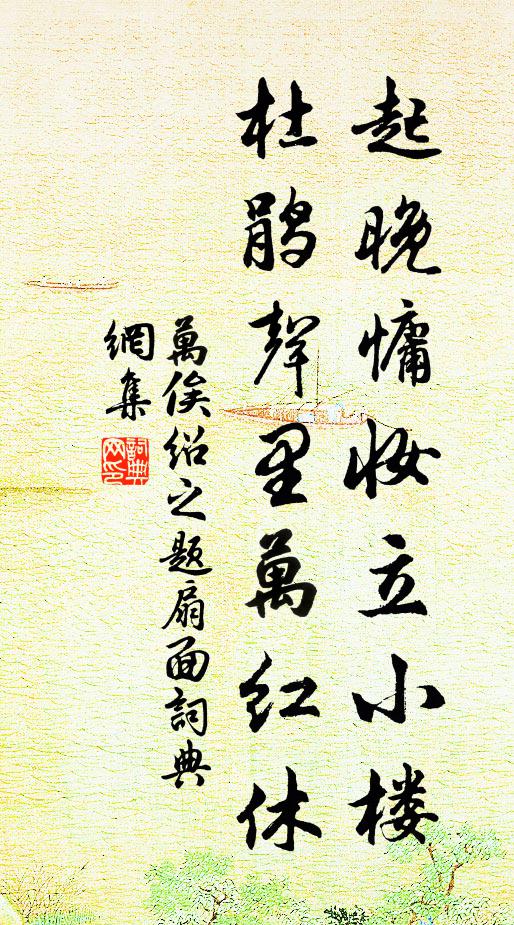 起晚慵妆立小楼
杜鹃声里萬红休
萬俟绍之题扇面詞典
網集
詞典网印